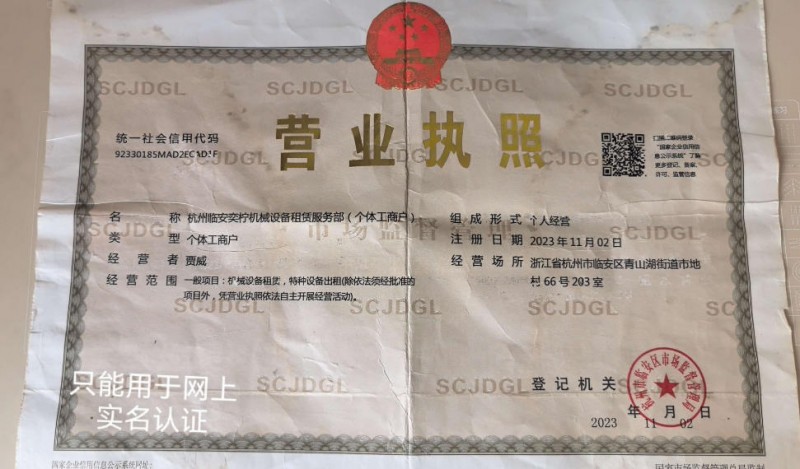 SCJDGL SCJDGL SCJDGL SCJDGL
统一社会信用代码
营业执照
扫描二维码登录
“国家企业信用信
息公示系统”了解
更多登记、备案、
许可、监管信息
名称 杭州临安奕柠机械设备租赁服务部（个体工商户）
类型 个体工商户
经营者 贾威
经营范围 一般项目：机械设备租赁，特种设备出租(除依法须经批准的
项目外，凭营业执照依法自主开展经营活动)。
组成形式 个人经营
注册日期 2023年11月02日
经营场所 浙江省杭州市临安区青山湖街道市地
村66号203室
市场监督管理
SCJDGL SCJDGL
SCJDGL SCJDGL SCJDGL
只能用于网上
实名认证
登记机关
杭州市临安区市场监督管理局
2023年11月02日
国家企业信用信息公示系统网址：
国家市场监督管理总局监制